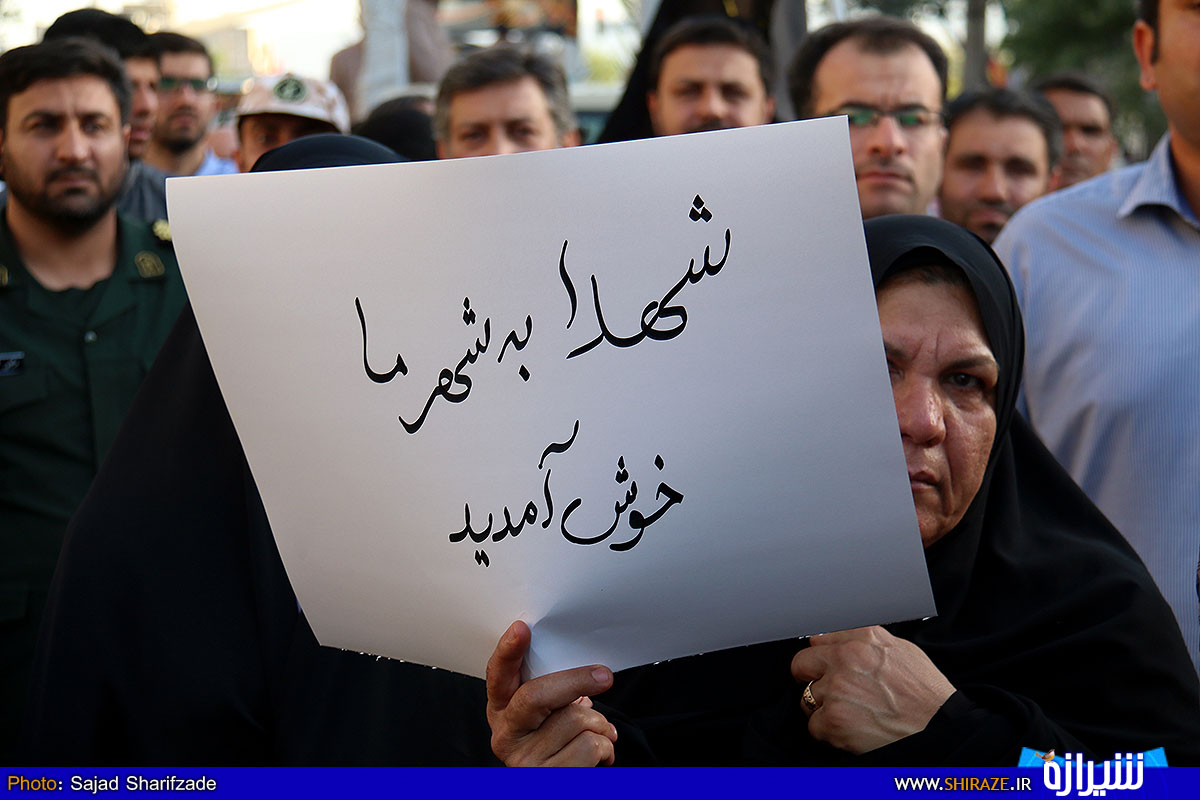 شهدا به شهر ما
خوش آمدید
Photo: Sajad Sharifzade
www.SHIRAZE.IR
شیرازه